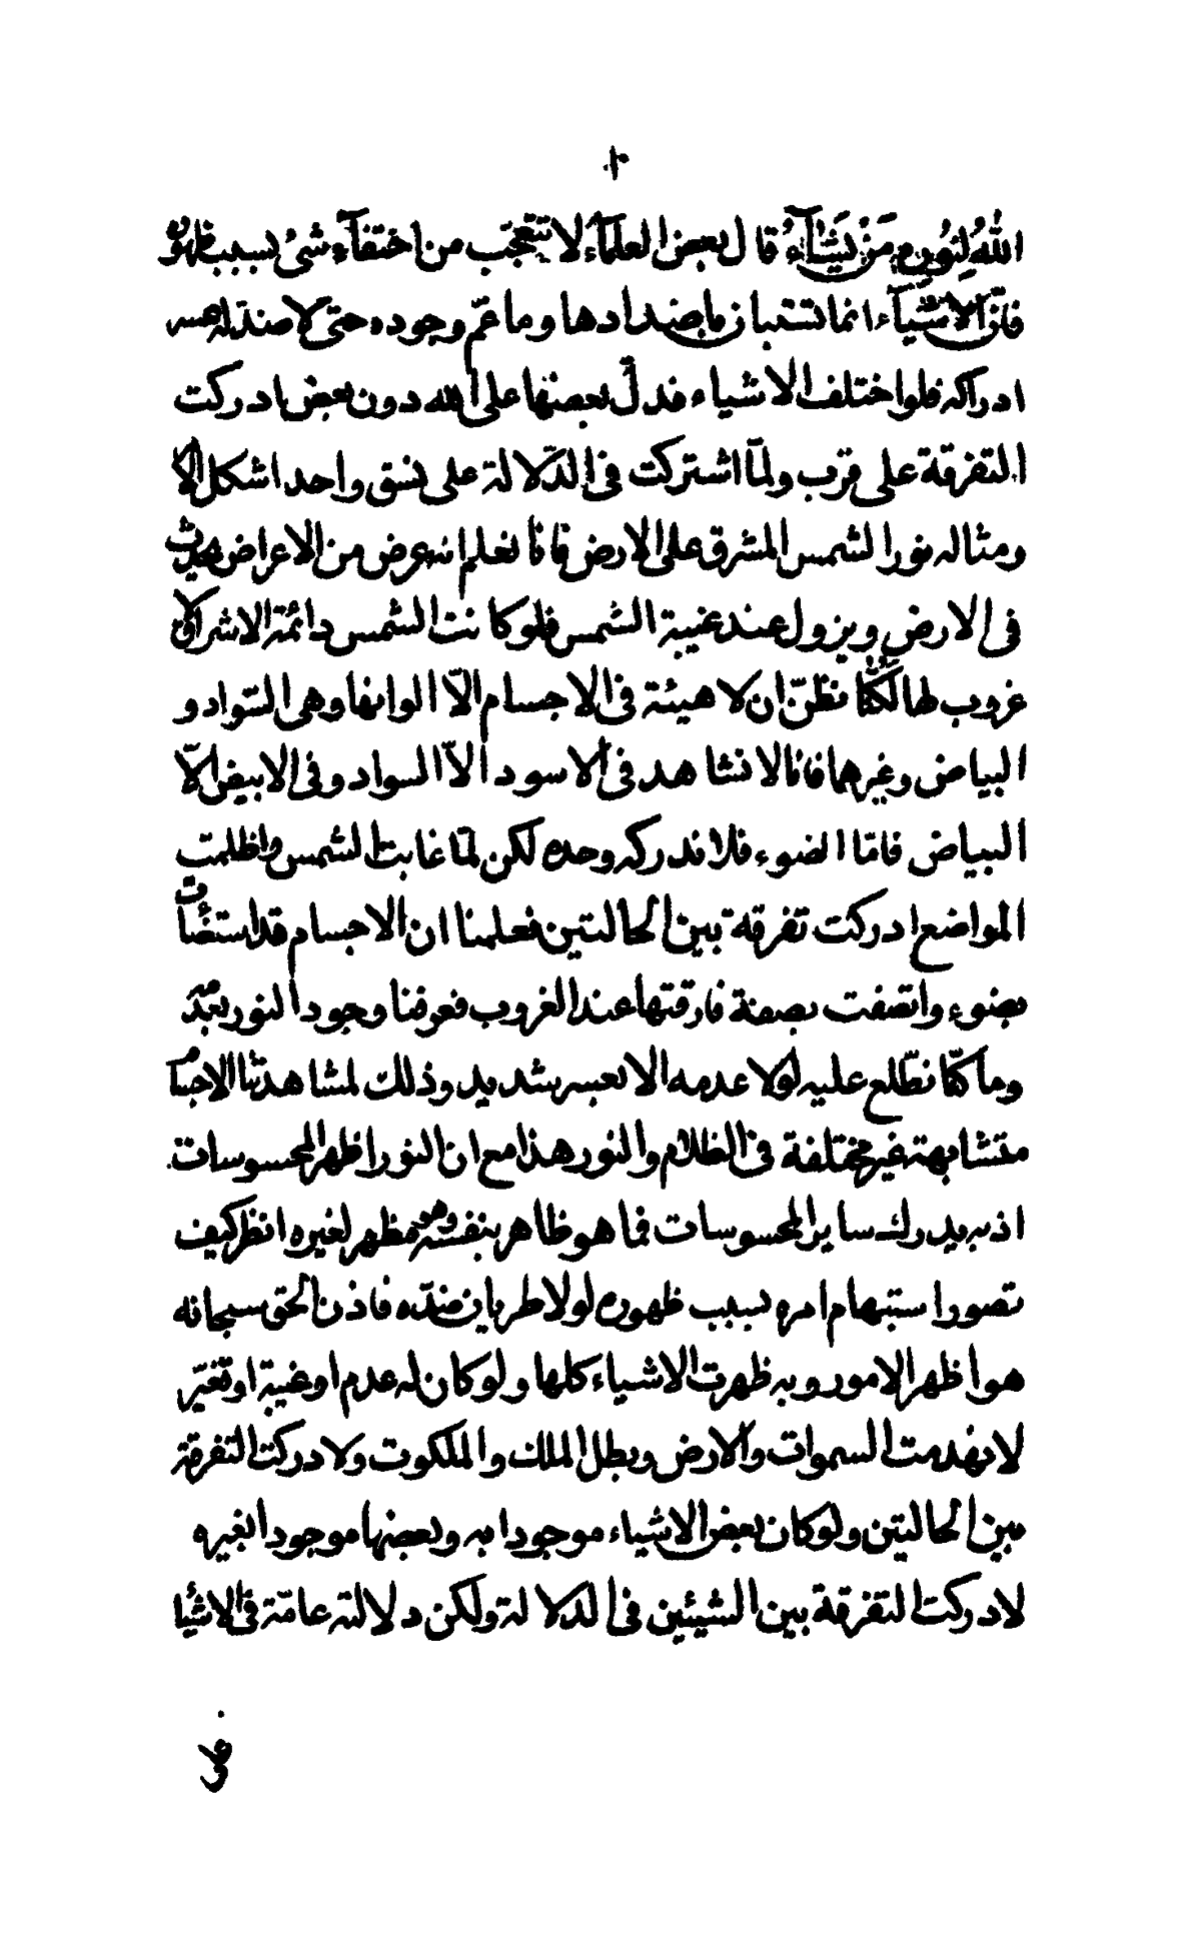 ١٠
اللهُ لِنُورِهِ مَنْ يَشَآءُ قال بعض العلمآء لا تتعجّب من اختفآء شئ بسبب ظهوره
فانّ الاشيآء انما تستبان باضدادها وما عمّ وجوده حتى لا ضدّ له عسر
ادراكه فلو اختلف الاشياء فدلّ بعضها على الله دون بعض ادركت
التفرقة على قرب ولمّا اشتركت فى الدّلالة على نسق واحد اشكل الامر
ومثاله نور الشمس المشرق على الارض فانا نعلم انه عرض من الاعراض يحدث
فى الارض ويزول عند غيبة الشمس فلو كانت الشمس دائمة الاشراق لا
غروب لها لكُنّا نظنّ ان لا هيئة فى الاجسام الّا الوانها وهى السّواد و
البياض وغيرهما فانا لا نشاهد فى الاسود الّا السواد وفى الابيض الّا
البياض فامّا الضوء فلا ندركه وحده لكن لمّا غابت الشمس واظلمت
المواضع ادركت تفرقة بين الحالتين فعلمنا ان الاجسام قد استضأت
بضوء واتصفت بصفة فارقتها عند الغروب فعرفنا وجود النور بعدمه
وما كنّا نطّلع عليه لولا عدمه الا بعسر شديد وذلك لمشاهدتنا الاجسام
متشابهة غير مختلفة فى الظلام والنور هذا مع ان النور اظهر المحسوسات
اذ به يدرك ساير المحسوسات فما هو ظاهر بنفسه وهو مظهر لغيره انظر كيف
تصور استبهام امره بسبب ظهوره لولا طريان ضدّه فاذن الحق سبحانه
هو اظهر الامور وبه ظهرت الاشياء كلها ولو كان له عدم او غيبة او تغيّر
لانهدمت السموات والارض وبطل الملك والملكوت ولادركت التفرقة
بين الحالتين ولو كان بعض الاشياء موجودا به وبعضها موجودا بغيره
لادركت التفرقة بين الشيئين فى الدلالة ولكن دلالته عامّة فى الاشيا
على